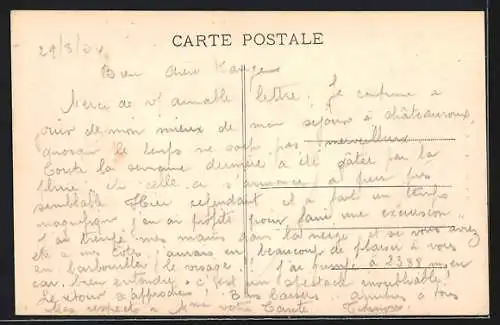 CARTE POSTALE
29/8/24
Bien chère
Merci de vt aimable lettre. Je continue à
de mon mieux de mon séjour à châteauroux,
quoique le temps ne soit pas merveilleux
Toute la semaine dernière a été gâtée par la
pluie, et celle ci s'annonce à peu près
semblable Hier cependant il a fait un temps
magnifique j'en ai profité pour faire une excursion,
J'ai trempé mes mains dans la neige et si vous aviez
été à mes côtés j'aurais eu beaucoup de plaisir à vous
en barbouiller le visage. J'ai à 2388 m, en
car, bien entendu, c'est un spectacle inoubliable!
Le retour approche! Bons baisers, à vous
Mes respects à Mme votre Tante